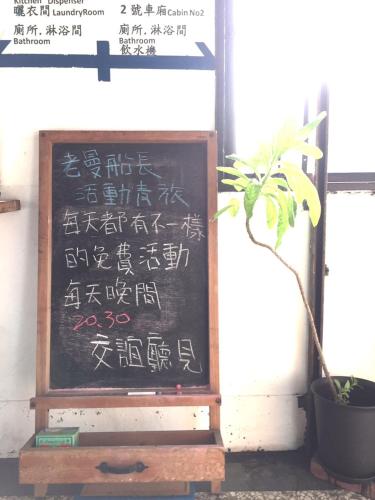 Kitchen Dispenser
曬衣間 LaundryRoom
廁所, 淋浴間
Bathroom
2 號車廂 Cabin No2
廁所, 淋浴間
Bathroom
飲水機
老曼船長
活動青旅
每天都有不一樣
的免費活動
每天晚間
20.30
交誼廳見